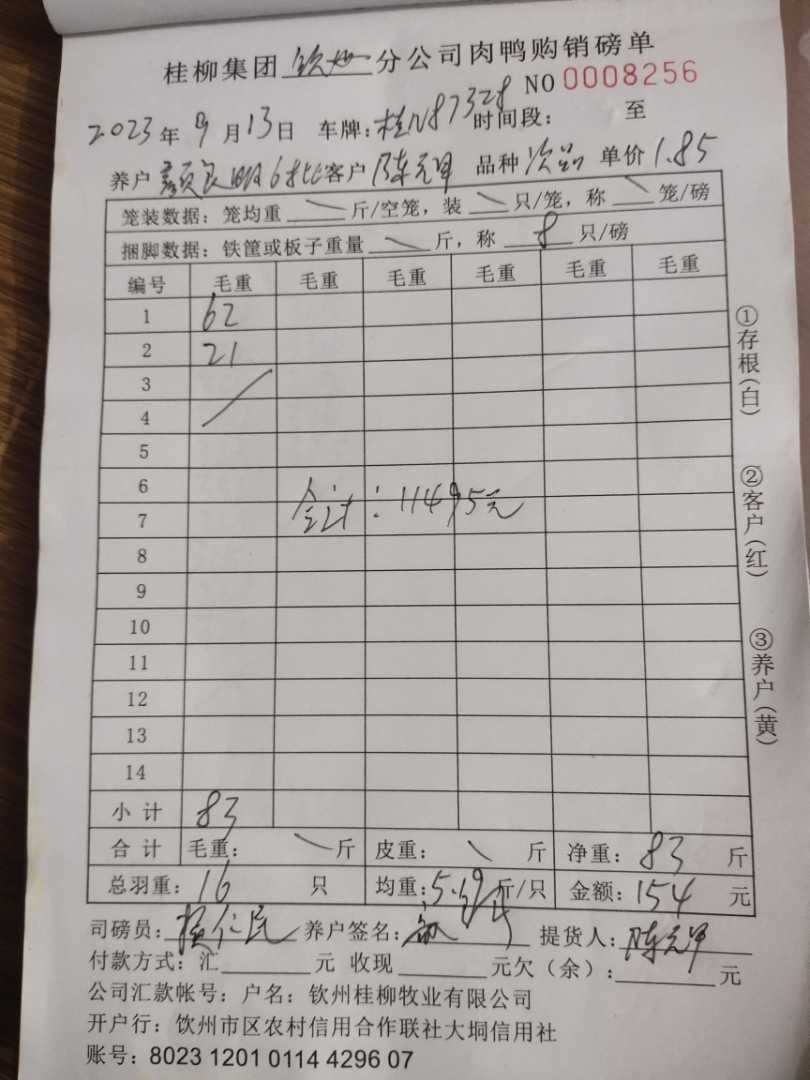 桂柳集团 钦州 分公司肉鸭购销磅单
NO 0008256
2023年9月13日 车牌:桂N87328 时间段: 至
养户 颜良明6批 客户 陈元甲 品种 次品 单价 1.85
笼装数据:笼均重 \ 斤/空笼,装 \ 只/笼,称 \ 笼/磅
捆脚数据:铁筐或板子重量 \ 斤,称 8 只/磅
编号 毛重 毛重 毛重 毛重 毛重 毛重
1 62
2 21
3
4
5
6
合计:11495元
7
8
9
10
11
12
13
14
小计 83
合计 毛重: \ 斤 皮重: \ 斤 净重:83 斤
总羽重:16 只 均重:5.19 斤/只 金额:154 元
司磅员: 仁民 养户签名: 提货人:陈元甲
付款方式:汇 元 收现 元欠(余): 元
公司汇款帐号:户名:钦州桂柳牧业有限公司
开户行:钦州市区农村信用合作联社大垌信用社
账号:8023 1201 0114 4296 07
①存根(白)
②客户(红)
③养户(黄)